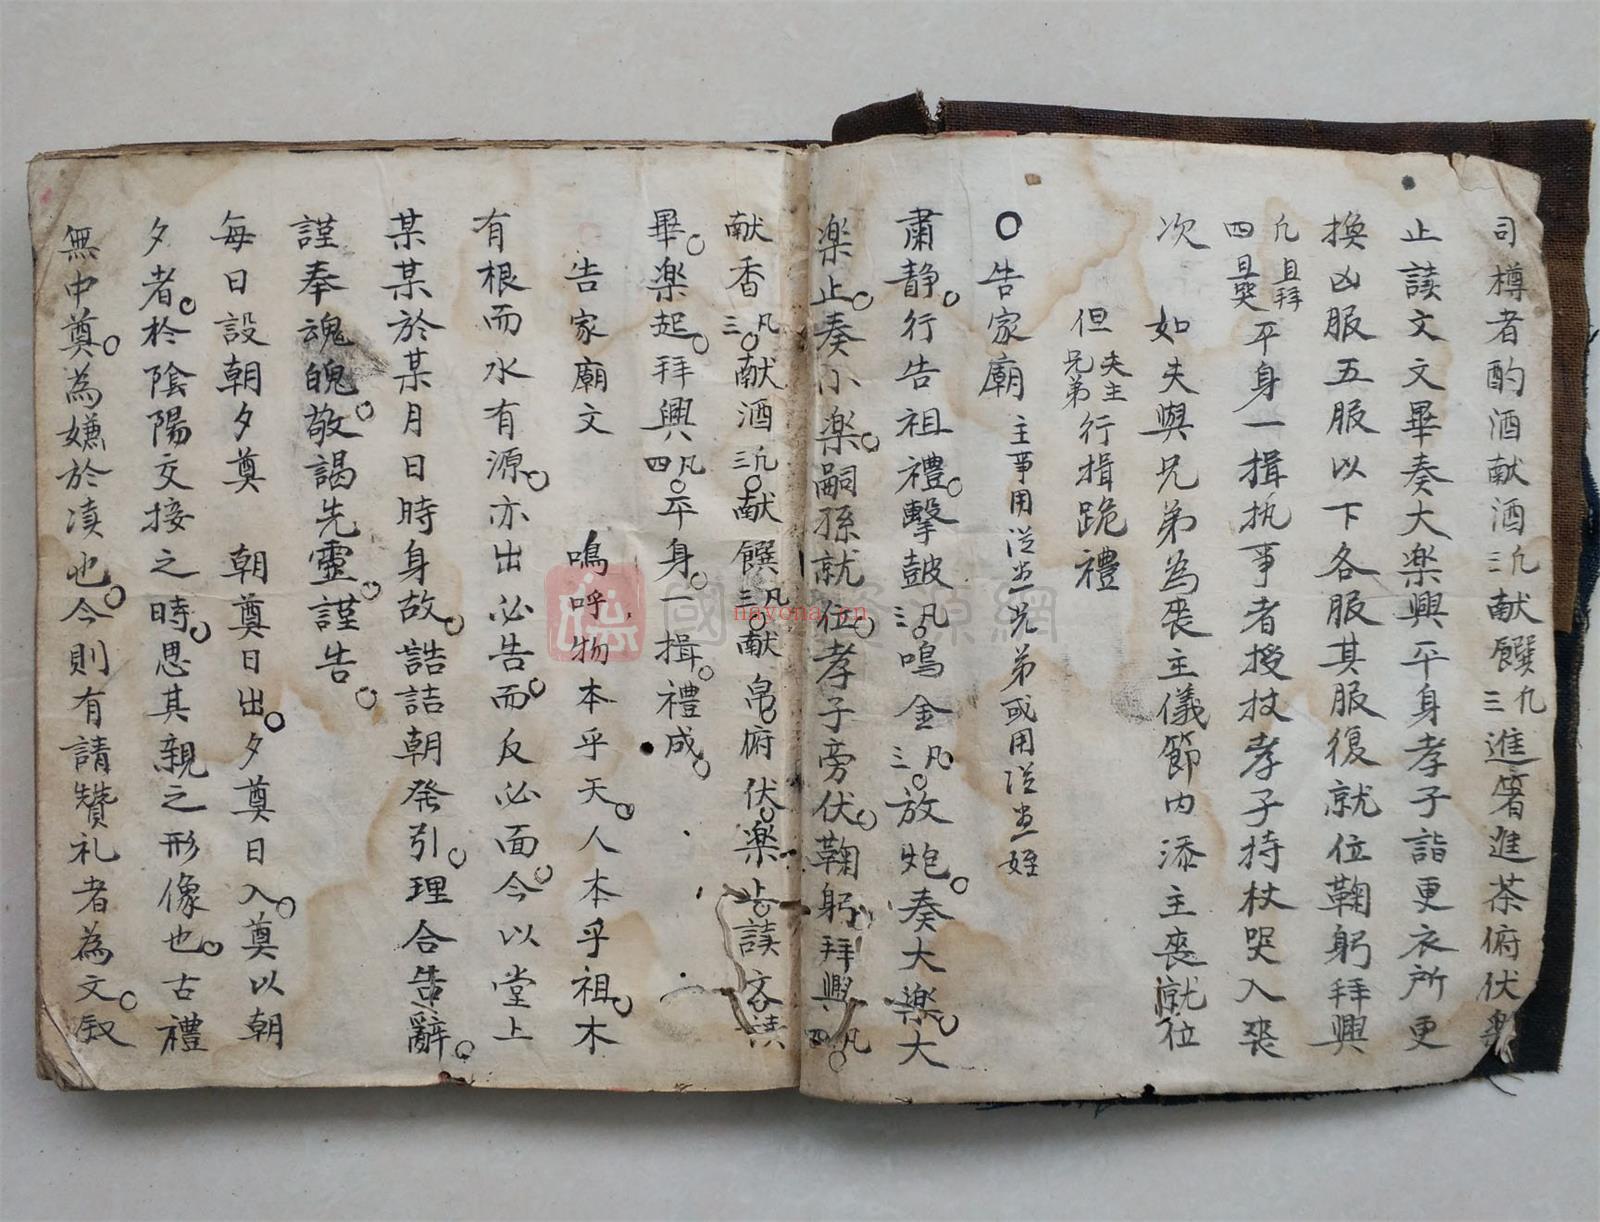 司樽者酌酒献酒三凢献饌三凢進箸進茶俯伏樂
止讀文文畢奏大楽興平身孝子詣更衣所更
換凶服五服以下各服其服復就位鞠躬拜興
四凢且拜且哭平身一揖执事者授杖孝子持杖哭入喪
次　如夫與兄弟為喪主儀節内添主喪就位
但夫主兄弟行揖跪禮
○告家廟　主事用從堂兄弟或用從堂姪
肅静行告祖禮擊鼓三凡鳴金三凡放炮奏大樂大
楽止奏小楽嗣孫就位孝子旁伏鞠躬拜興四凡
献香三凡献酒三凢献饌三凡献帛俯伏楽止讀文讀
畢楽起拜興四凡平身一揖禮成
告家廟文　鳴呼物本乎天人本乎祖木
有根而水有源亦出必告而反必面今以堂上
某某於某月日時身故詰朝発引理合告辭
謹奉魂魄敬謁先靈謹告
每日設朝夕奠　朝奠日出夕奠日入奠以朝
夕者於陰陽交接之時思其親之形像也古禮
無中奠為嫌於凟也今則有請贊礼者為文叙
nayona.cn
國學資源網